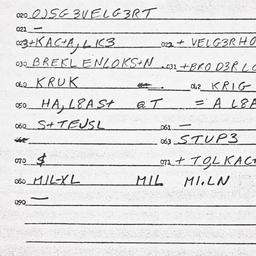 020 OJSG3VELG3RT
021 —
023 +KAC+A,LK3 022 + VELG3RHO
030 BREKLENLOKS+N 031 +BROD3RLO
040 KRUK 042 KRIG
050 HA,L8AS+ @T = A L8A
060 S+TEUSL 061 —
063 STUP3
070 $ 071 + TOLKAC+
080 MIL-XL MIL MI.LN
090 —